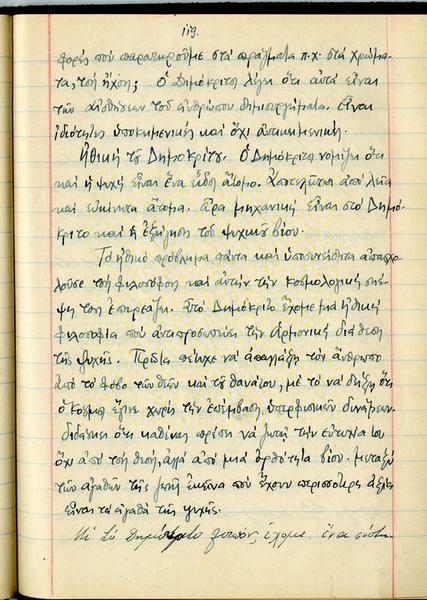 119.
φορές που παρατηρούμε στα πράγματα π.χ. στα χρώμα-
τα, τση ήχοση; Ο Δημόκριτος λέγει ότι αυτά είναι
των αισθήσεων του ανθρώπου δημιουργήματα. είναι
ιδιότητες υποκημενικές και όχι αντικημενική.
Ηθική του Δημοκρίτου. Ο Δημόκριτο νομίζει ότι
και η ψυχή είναι ένα είδος άτομο. Αποτελήται από λεία
και ευκίνητα άτομα. άρα μηχανική είναι στο Δημό-
κριτο και η εξήγηση του ψυχικού βίου.
Το ηθικό πρόβλημα πάντα και υποσυνείδητα απασχο-
λούσε τση φιλοσόφοση και αυτήν την κοσμολογική σκέ-
ψη τοση επιρέαζη. Στο Δημόκριτο έχομε μια ηθική
φιλοσοφία που αντιπροσωπεύει την αρμονική διάθεση
της ψυχής. πέτυχε να απαλλάξη τον άνθρωπο
από το φόβο των θεών και του θανάτου, με το να δείξη ότι
ο κόσμος έγινε χωρίς την επέμβαση υπερφυσικών δυνάμεων.
διδάσκει ότι καθένας πρέπει να ζητή την ευτυχία του
όχι από τση θεοή, αλλά από μια ορθότητα βίου. μεταξύ
των αγαθών της ζωής εκείνα που έχουν περισσότερη αξία
είναι τα αγαθά της ψυχής.
Κι στο Δημόκριτο λοιπόν, έχομε ένα σύστη-